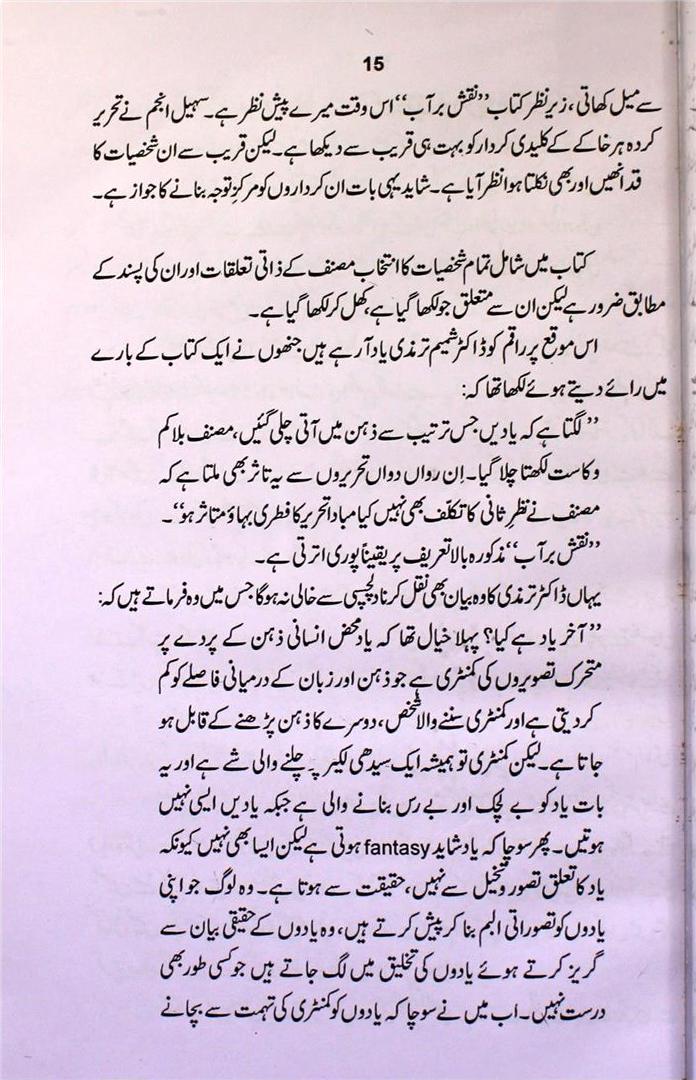 15
سے میل کھاتی، زیر نظر کتاب ’’نقش بر آب‘‘ اس وقت میرے پیش نظر ہے۔ سہیل انجم نے تحریر
کردہ ہر خاکے کے کلیدی کردار کو بہت ہی قریب سے دیکھا ہے۔ لیکن قریب سے ان شخصیات کا
قد انھیں اور بھی نکلتا ہوا نظر آیا ہے۔ شاید یہی بات ان کرداروں کو مرکزِ توجہ بنانے کا جواز ہے۔
کتاب میں شامل تمام شخصیات کا انتخاب مصنف کے ذاتی تعلقات اور ان کی پسند کے
مطابق ضرور ہے لیکن ان سے متعلق جو لکھا گیا ہے، کھل کر لکھا گیا ہے۔
اس موقع پر راقم کو ڈاکٹر شمیم ترمذی یاد آ رہے ہیں جنھوں نے ایک کتاب کے بارے
میں رائے دیتے ہوئے لکھا تھا کہ:
’’لگتا ہے کہ یادیں جس ترتیب سے ذہن میں آتی چلی گئیں، مصنف بلا کم
و کاست لکھتا چلا گیا۔ اِن رواں دواں تحریروں سے یہ تاثر بھی ملتا ہے کہ
مصنف نے نظرِ ثانی کا تکلّف بھی نہیں کیا مبادا تحریر کا فطری بہاؤ متاثر ہو‘‘۔
’’نقش بر آب‘‘ مذکورہ بالا تعریف پر یقیناً پوری اترتی ہے۔
یہاں ڈاکٹر ترمذی کا وہ بیان بھی نقل کرنا دلچسپی سے خالی نہ ہوگا جس میں وہ فرماتے ہیں کہ:
’’آخر یاد ہے کیا؟ پہلا خیال تھا کہ یاد محض انسانی ذہن کے پردے پر
متحرک تصویروں کی کمنٹری ہے جو ذہن اور زبان کے درمیانی فاصلے کو کم
کر دیتی ہے اور کمنٹری سننے والا شخص، دوسرے کا ذہن پڑھنے کے قابل ہو
جاتا ہے۔ لیکن کمنٹری تو ہمیشہ ایک سیدھی لکیر پہ چلنے والی شے ہے اور یہ
بات یاد کو بے لچک اور بے رس بنانے والی ہے جبکہ یادیں ایسی نہیں
ہوتیں۔ پھر سوچا کہ یاد شاید fantasy ہوتی ہے لیکن ایسا بھی نہیں کیونکہ
یاد کا تعلق تصور و تخیل سے نہیں، حقیقت سے ہوتا ہے۔ وہ لوگ جو اپنی
یادوں کو تصوراتی البم بنا کر پیش کرتے ہیں، وہ یادوں کے حقیقی بیان سے
گریز کرتے ہوئے یادوں کی تخلیق میں لگ جاتے ہیں جو کسی طور بھی
درست نہیں۔ اب میں نے سوچا کہ یادوں کو کمنٹری کی تہمت سے بچانے